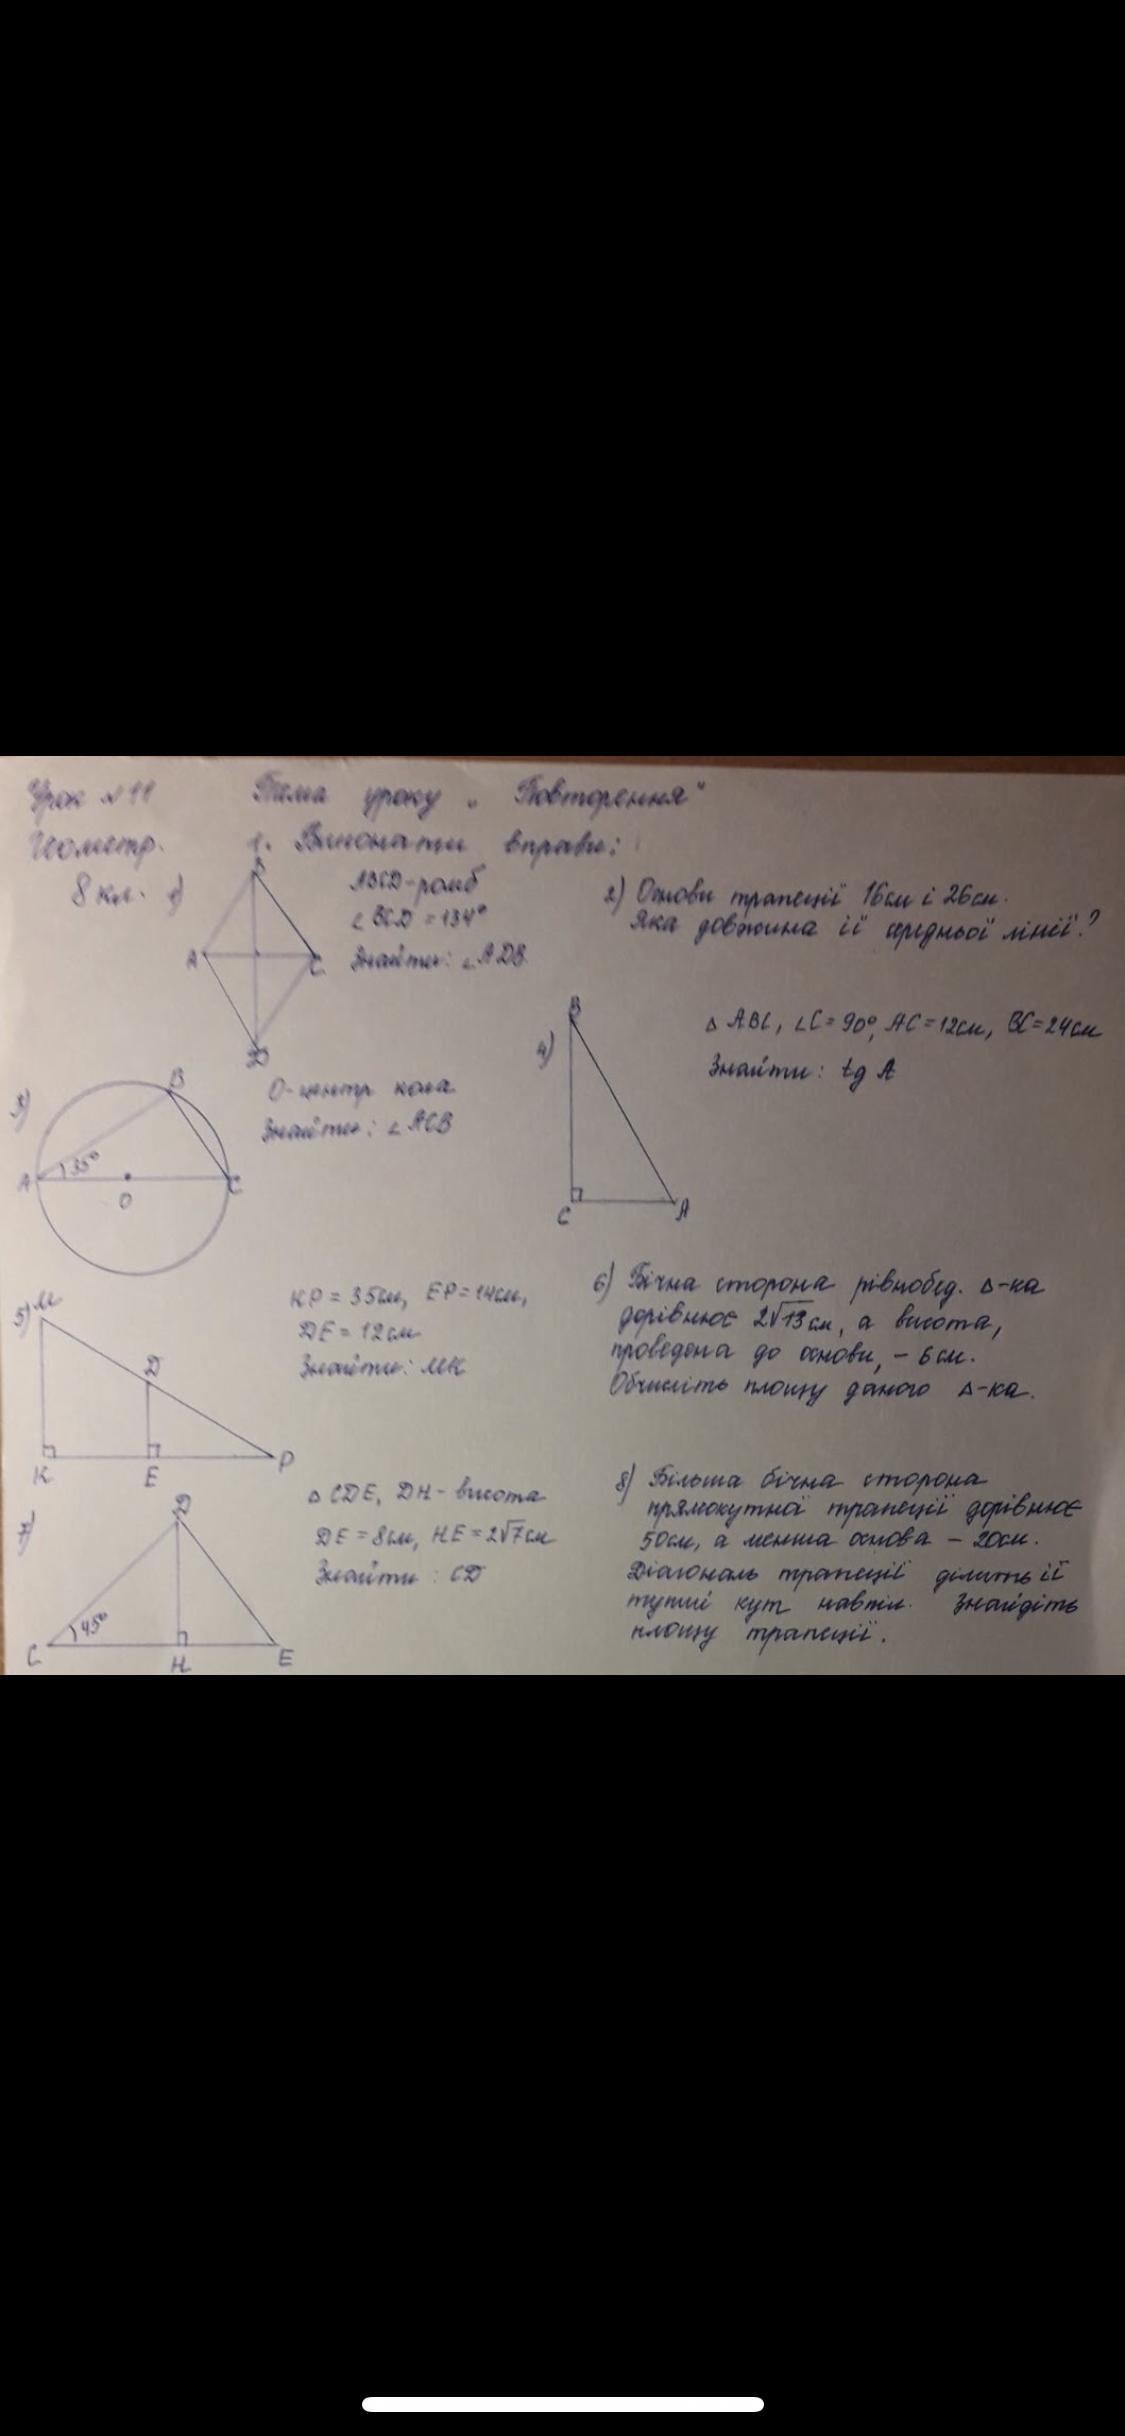 Урок №11 Тема уроку „ Повторення"
Геометр. 1. Виконати вправи:
8 кл. 1)
B
A
C
D
ABCD-ромб
∠BCD = 134°
Знайти: ∠ADB
2) Основи трапеції 16см і 26см.
Яка довжина її середньої лінії?
3)
B
A
35°
O
C
O-центр кола
Знайти: ∠ACB
4)
B
C
A
△ ABC, ∠C = 90°, AC = 12см, BC = 24см
Знайти: tg A
5)
M
D
K
E
P
KP = 35см, EP = 14см,
DE = 12см
Знайти: MK
6) Бічна сторона рівнобед. △-ка
дорівнює 2√13 см, а висота,
проведена до основи, – 6см.
Обчисліть площу даного △-ка.
7)
D
45°
C
H
E
△ CDE, DH - висота
DE = 8см, HE = 2√7см
Знайти: CD
8) Більша бічна сторона
прямокутної трапеції дорівнює
50см, а менша основа – 20см.
Діагональ трапеції ділить її
тупий кут навпіл. Знайдіть
площу трапеції.